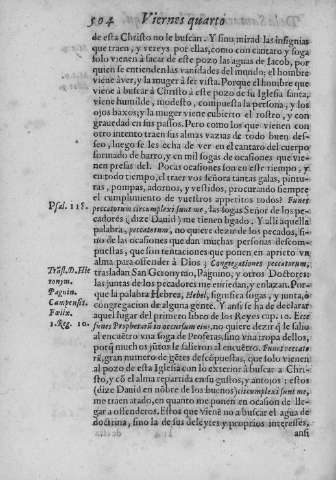 504 Viernes quarto
de esta Christo no le buscan. Y sino mirad las insignias
que traen, y vereys por ellas, como con cantaro y soga
solo vienen à sacar de este pozo las aguas de Iacob, por
quien se entienden las vanidades del mundo; el hombre
viene à ver, y la muger à ser vista. Porque el hombre que
viene à buscar à Christo à este pozo de su Iglesia santa,
viene humilde, modesto, compuesta la persona, y los
ojos baxos; y la muger viene cubierto el rostro, y con
grauedad en sus passos. Pero como los que vienen con
otro intento traen sus almas vazias de todo buen des-
seo, luego se les echa de ver en el cantaro del cuerpo
formado de barro, y en mil sogas de ocasiones que vie-
nen presas del. Pocas ocasiones son en este tiempo, y
en todo tiempo, el traer vos señora tantas galas, pintu-
ras, pompas, adornos, y vestidos, procurando siempre
el cumplimiento de vuestros appetitos todos? Funes
Psal. 118. peccatorum circumplexi sunt me, las sogas Señor de los pe-
cadores (dize Dauid) me tienen ligado. Y alli aquella
palabra, peccatorum, no quiere dezir de los pecados, si-
no de las ocasiones que dan muchas personas descom-
puestas, que son tentaciones que ponen en aprieto vn
alma para offender à Dios; Congregationes peccatorum,
Trāsl. D. Hie trasladan San Geronymo, Pagnino, y otros Doctores:
ronym. las juntas de los pecadores me enriedan, y enlazan. Por-
Pagnin. que la palabra Hebrea, Hebel, significa sogas, y junta, ò
Campensis. congregacion de alguna gente. Y ansi se ha de declarar
Fœlix. aquel lugar del primero libro de los Reyes cap. 10. Ecce
1. Reg. 10. funes Prophetarū in occursum eius, no quiere dezir q̃ le salio
al encuētro vna soga de Profetas, sino vna tropa dellos,
porq̃ muchos jūtos le salieron al encuētro. Funes peccato
rū, gran numero de gētes descōpuestas, que solo vienen
al pozo de esta Iglesia con lo exterior à buscar à Chri-
sto, y cō el alma repartida en su gustos, y antojos: estos
(dize Dauid en nōbre de los buenos) circumplexi sunt me,
me traen atado, en quanto me ponen en ocasion de lle-
gar a offenderos. Estos que vienē no a buscar el agua de
doctrina, sino la de sus deleytes y proprios interesses,
ansi